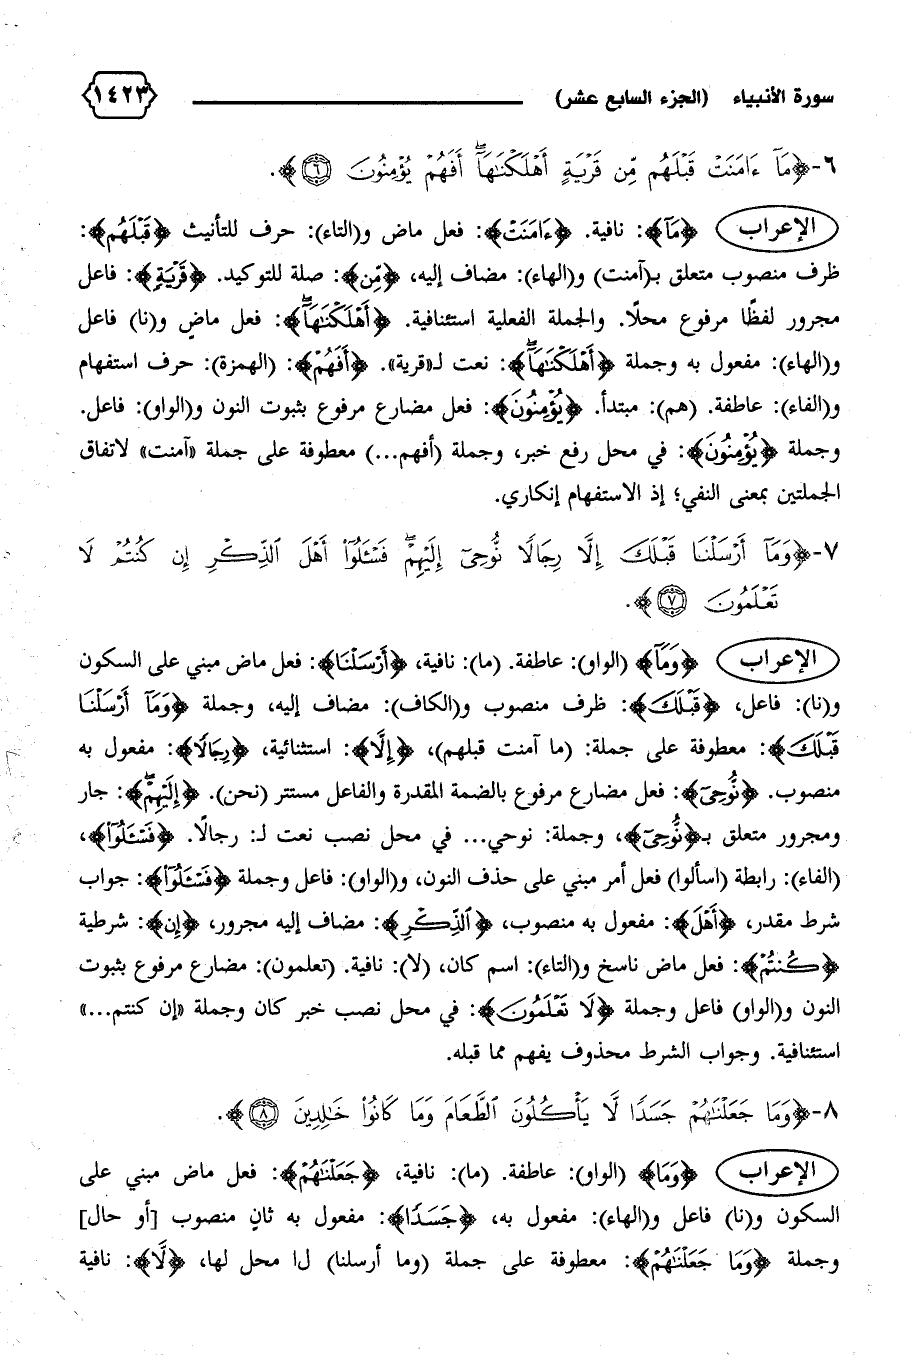 سورة الأنبياء (الجزء السابع عشر) ١٤٢٣
٦-﴿مَآ ءَامَنَتْ قَبْلَهُم مِّن قَرْيَةٍ أَهْلَكْنَٰهَآ ۖ أَفَهُمْ يُؤْمِنُونَ ٦﴾.
الإعراب ﴿مَآ﴾: نافية. ﴿ءَامَنَتْ﴾: فعل ماض و(التاء): حرف للتأنيث ﴿قَبْلَهُم﴾:
ظرف منصوب متعلق بـ(آمنت) و(الهاء): مضاف إليه، ﴿مِّن﴾: صلة للتوكيد. ﴿قَرْيَةٍ﴾: فاعل
مجرور لفظًا مرفوع محلًا. والجملة الفعلية استئنافية. ﴿أَهْلَكْنَٰهَآ ۖ﴾: فعل ماضٍ و(نا) فاعل
و(الهاء): مفعول به وجملة ﴿أَهْلَكْنَٰهَآ ۖ﴾: نعت لـ«قرية». ﴿أَفَهُمْ﴾: (الهمزة): حرف استفهام
و(الفاء): عاطفة. (هم): مبتدأ. ﴿يُؤْمِنُونَ﴾: فعل مضارع مرفوع بثبوت النون و(الواو): فاعل.
وجملة ﴿يُؤْمِنُونَ﴾: في محل رفع خبر، وجملة (أفهم...) معطوفة على جملة «آمنت» لاتفاق
الجملتين بمعنى النفي؛ إذ الاستفهام إنكاري.
٧-﴿وَمَآ أَرْسَلْنَا قَبْلَكَ إِلَّا رِجَالًا نُّوحِىٓ إِلَيْهِمْ ۖ فَسْـَٔلُوٓا۟ أَهْلَ ٱلذِّكْرِ إِن كُنتُمْ لَا
تَعْلَمُونَ ٧﴾.
الإعراب ﴿وَمَآ﴾ (الواو): عاطفة. (ما): نافية، ﴿أَرْسَلْنَا﴾: فعل ماض مبني على السكون
و(نا): فاعل، ﴿قَبْلَكَ﴾: ظرف منصوب و(الكاف): مضاف إليه، وجملة ﴿وَمَآ أَرْسَلْنَا
قَبْلَكَ﴾: معطوفة على جملة: (ما آمنت قبلهم)، ﴿إِلَّا﴾: استثنائية، ﴿رِجَالًا﴾: مفعول به
منصوب. ﴿نُّوحِىٓ﴾: فعل مضارع مرفوع بالضمة المقدرة والفاعل مستتر (نحن). ﴿إِلَيْهِمْ ۖ﴾: جار
ومجرور متعلق بـ﴿نُّوحِىٓ﴾، وجملة: نوحي... في محل نصب نعت لـ: رجالًا. ﴿فَسْـَٔلُوٓا۟﴾،
(الفاء): رابطة (اسألوا) فعل أمر مبني على حذف النون، و(الواو): فاعل وجملة ﴿فَسْـَٔلُوٓا۟﴾: جواب
شرط مقدر، ﴿أَهْلَ﴾: مفعول به منصوب، ﴿ٱلذِّكْرِ﴾: مضاف إليه مجرور، ﴿إِن﴾: شرطية
﴿كُنتُمْ﴾: فعل ماض ناسخ و(التاء): اسم كان، (لا): نافية. (تعلمون): مضارع مرفوع بثبوت
النون و(الواو) فاعل وجملة ﴿لَا تَعْلَمُونَ﴾: في محل نصب خبر كان وجملة «إن كنتم...»
استئنافية. وجواب الشرط محذوف يفهم مما قبله.
٨-﴿وَمَا جَعَلْنَٰهُمْ جَسَدًا لَّا يَأْكُلُونَ ٱلطَّعَامَ وَمَا كَانُوا۟ خَٰلِدِينَ ٨﴾.
الإعراب ﴿وَمَا﴾ (الواو): عاطفة. (ما): نافية، ﴿جَعَلْنَٰهُمْ﴾: فعل ماض مبني على
السكون و(نا) فاعل و(الهاء): مفعول به، ﴿جَسَدًا﴾: مفعول به ثانٍ منصوب [أو حال]
وجملة ﴿وَمَا جَعَلْنَٰهُمْ﴾: معطوفة على جملة (وما أرسلنا) لا محل لها، ﴿لَّا﴾: نافية